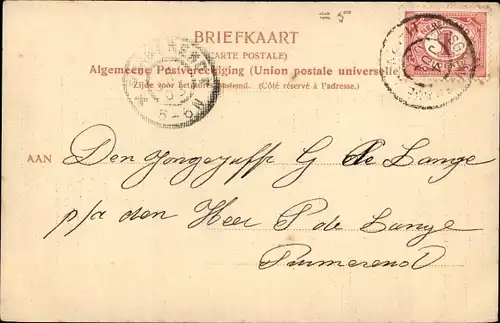 BRIEFKAART
(CARTE POSTALE)
Algemeene Postvereeniging (Union postale universelle)
Zijde voor het adres bestemd. (Côté réservé à l'adresse.)
AAN Den Jongejuff G de Lange
p/a den Heer P de Lange
Purmerend